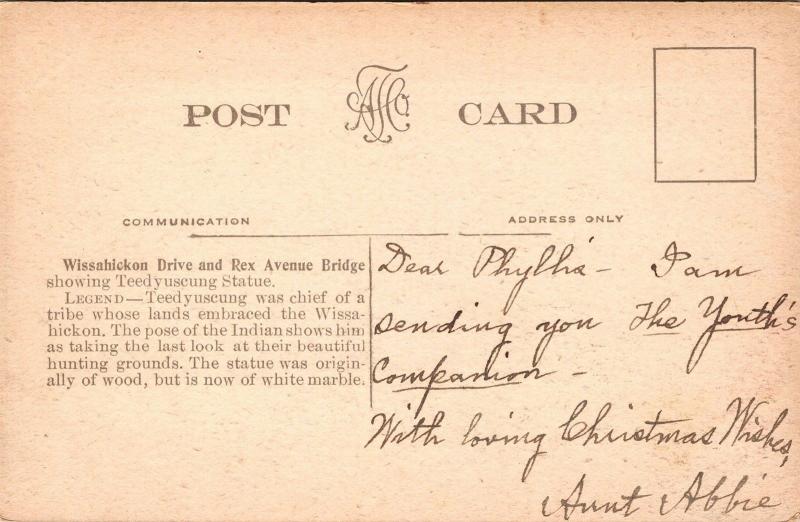 POST CARD
COMMUNICATION
ADDRESS ONLY
Wissahickon Drive and Rex Avenue Bridge
showing Teedyuscung Statue.
LEGEND—Teedyuscung was chief of a
tribe whose lands embraced the Wissa-
hickon. The pose of the Indian shows him
as taking the last look at their beautiful
hunting grounds. The statue was origin-
ally of wood, but is now of white marble.
Dear Phyllis - I am
sending you The Youth's
Companion -
With loving Christmas Wishes,
Aunt Abbie